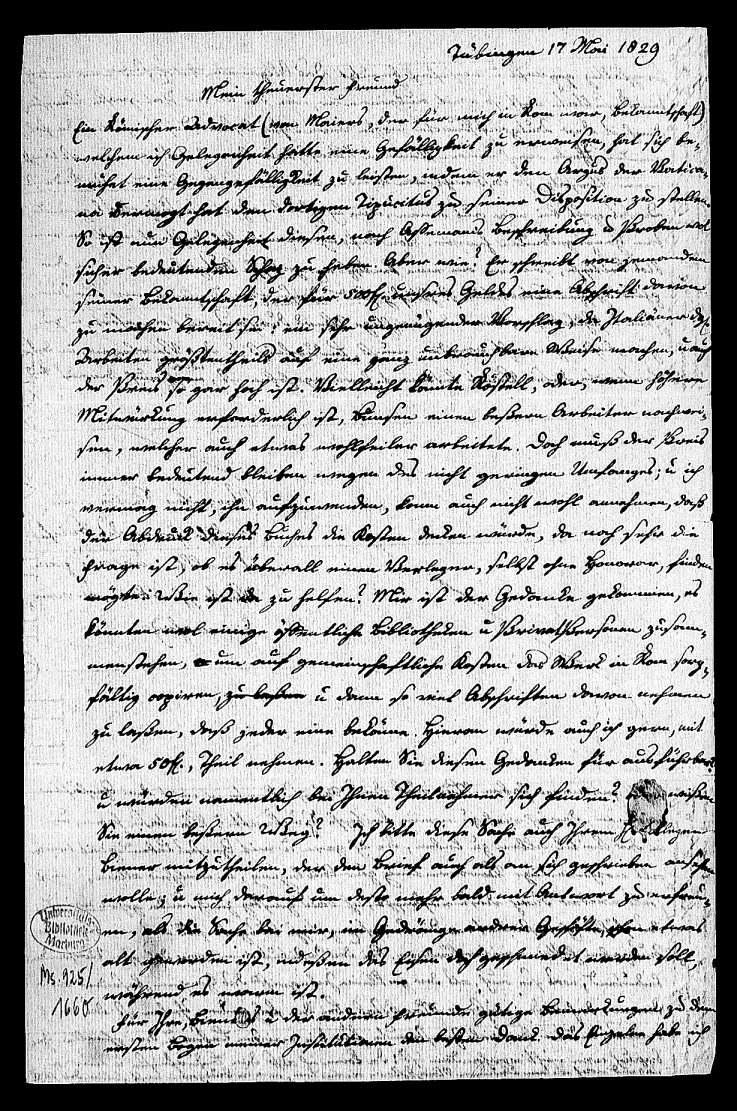 Tübingen 17 Mai 1829
Mein theuerster Freund
Ein Römischer Advocat (von Maiers, der für mich in Rom war, Bekanntschaft)
welchem ich Gelegenheit hatte eine Gefälligkeit zu erweisen, hat sich be-
mühet eine Gegengefälligkeit zu leisten, indem er den Argus der Vatica-
na vermogt hat den dortigen Tipucitus zu seiner Disposition zu stellen.
So ist nun Gelegenheit diesen, nach Assemanis Beschreibung u Proben wol
sicher bedeutenden Schatz zu heben. Aber wie? Er schreibt von jemandem
seiner Bekanntschaft der für 500 f. unseres Geldes eine Abschrift davon
zu machen bereit sei; ein sehr ungenügender Vorschlag, da Italiäner dgl.
Arbeiten größtentheils auf eine ganz unbrauchbare Weise machen, u auch
der Preis so gar hoch ist. Vielleicht könnte Röstell, oder, wenn höhere
Mitwürkung erforderlich ist, Bunsen einen beßern Arbeiter nachwei-
sen, welcher auch etwas wohlfeiler arbeitete. Doch muß der Preis
immer bedeutend bleiben wegen des nicht geringen Umfanges; u ich
vermag nicht, ihn aufzuwenden, kann auch nicht wohl annehmen, daß
der Abdruck dieses Buches die Kosten decken würde, da noch sehr die
Frage ist, ob es überall einen Verleger, selbst ohne Honorar, finden
mögte. Wie ist da zu helfen? Mir ist der Gedanke gekommen, es
könnten wol einige öffentliche Bibliotheken u Privatpersonen zusam-
menstehen, um auf gemeinschaftliche Kosten das Werk in Rom sorg-
fältig copiren, zu laßen u dann so viel Abschriften davon nehmen
zu laßen, daß jeder eine bekäme. Hieran würde auch ich gern, mit
etwa 50 f., Theil nehmen. Halten Sie diesen Gedanken für ausführbar?
u würden namentlich bei Ihnen Theilnehmer sich finden? wißen
Sie einen beßern Weg? Ich bitte diese Sache auch Ihrem Collegen
Biener mitzutheilen, der den Brief auch als an sich geschrieben ansehen
wolle; u mich darauf um desto mehr bald mit Antwort zu erfreu-
en, als die Sache bei mir, im Gedränge anderer Geschäfte, schon etwas
alt geworden ist, indeßen das Eisen doch geschmiedet werden soll,
während es warm ist.
Für Ihre, Bieners u der andern Freunde gütige Bemerkungen zu dem
ersten Bogen meiner Institutionen den besten Dank. Das habe ich
Universitäts-
Bibliothek
Marburg
Ms. 925/
1660